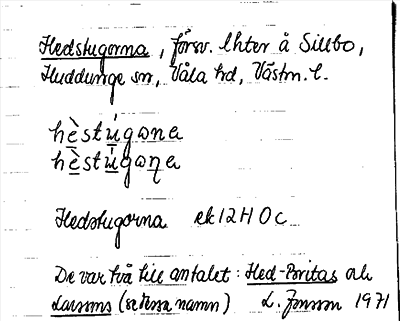 Hedstugorna, försv. lhter å Sillbo,
Huddunge sn, Våla hd, Västm. l.
hèstúgωna
hèstúgωņa
Hedstugorna ek 12H 0c
De var två till antalet: Hed-Britas och
Larssons (se dessa namn) L. Jonsson 1971